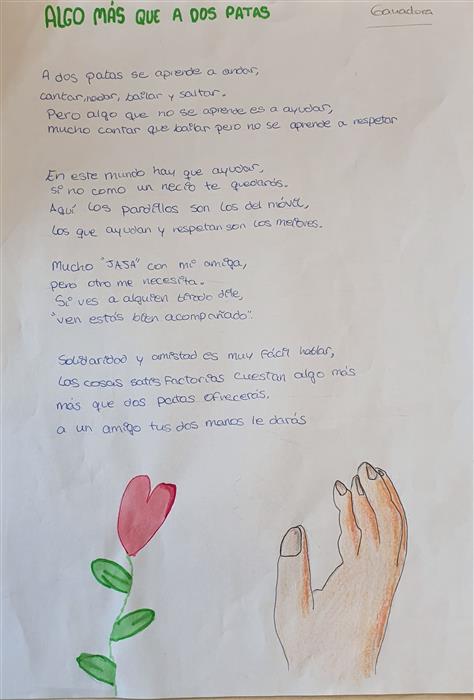 ALGO MÁS QUE A DOS PATAS
Ganadora
A dos patas se aprende a andar,
cantar, nadar, bailar y saltar.
Pero algo que no se aprende es a ayudar,
mucho cantar que bailar pero no se aprende a respetar
En este mundo hay que ayudar,
si no como un necio te quedarás.
Aquí los pardillos son los del móvil,
los que ayudan y respetan son los mejores.
Mucho "JAJA" con mi amiga,
pero otro me necesita.
Si ves a alguien tirado dile,
"ven estás bien acompañado".
Solidaridad y amistad es muy fácil hablar,
las cosas satisfactorias cuestan algo más
más que dos patas ofrecerás,
a un amigo tus dos manos le darás